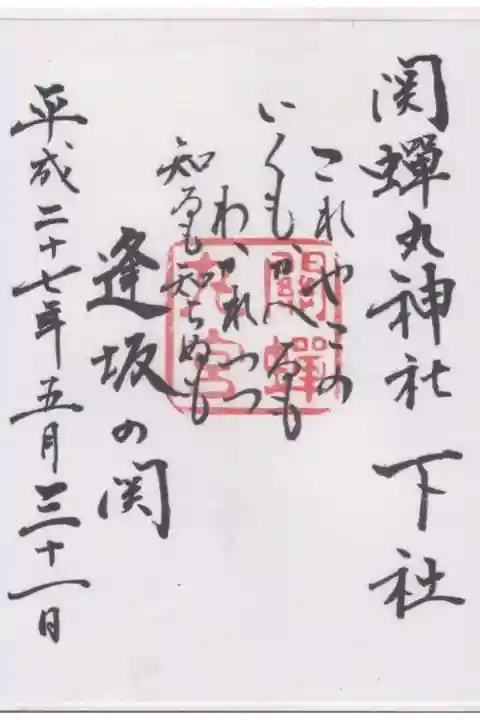 関蝉丸神社 下社
これやこの
いくも、かへるも
わかれつつ
知るも知らぬも
逢坂の関
平成二十七年五月三十一日
關蟬
丸宮